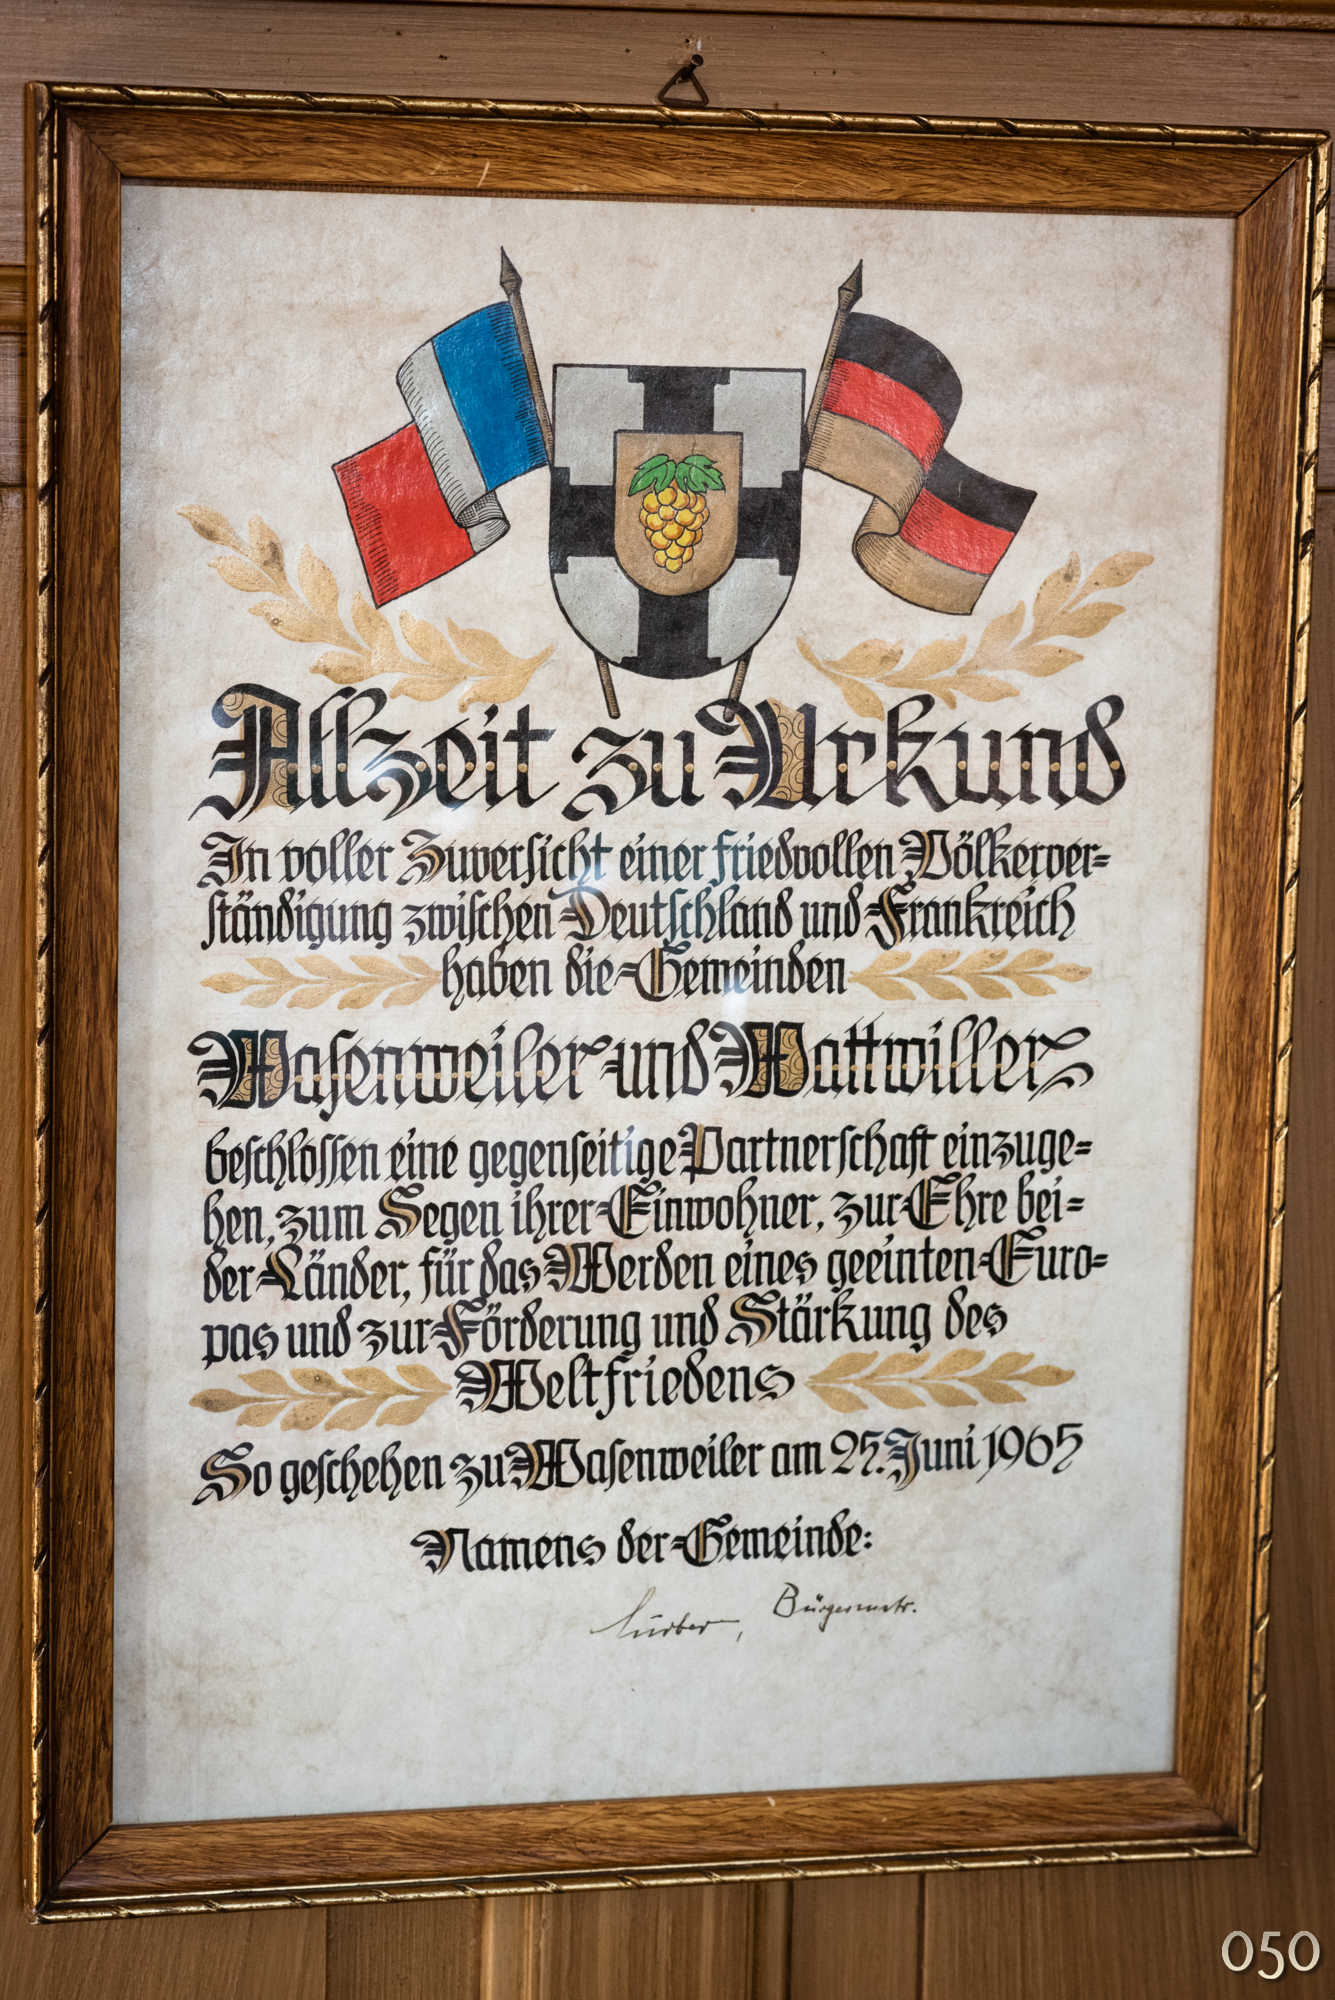 Allzeit zu Urkund
In voller Zuversicht einer friedvollen Völkerver=
ständigung zwischen Deutschland und Frankreich
haben die Gemeinden
Wasenweiler und Wattwiller
beschlossen eine gegenseitige Partnerschaft einzuge=
hen, zum Segen ihrer Einwohner, zur Ehre bei=
der Länder, für das Werden eines geeinten Euro=
pas und zur Förderung und Stärkung des
Weltfriedens
So geschehen zu Wasenweiler am 25. Juni 1965
Namens der Gemeinde:
Bürgermstr.
050